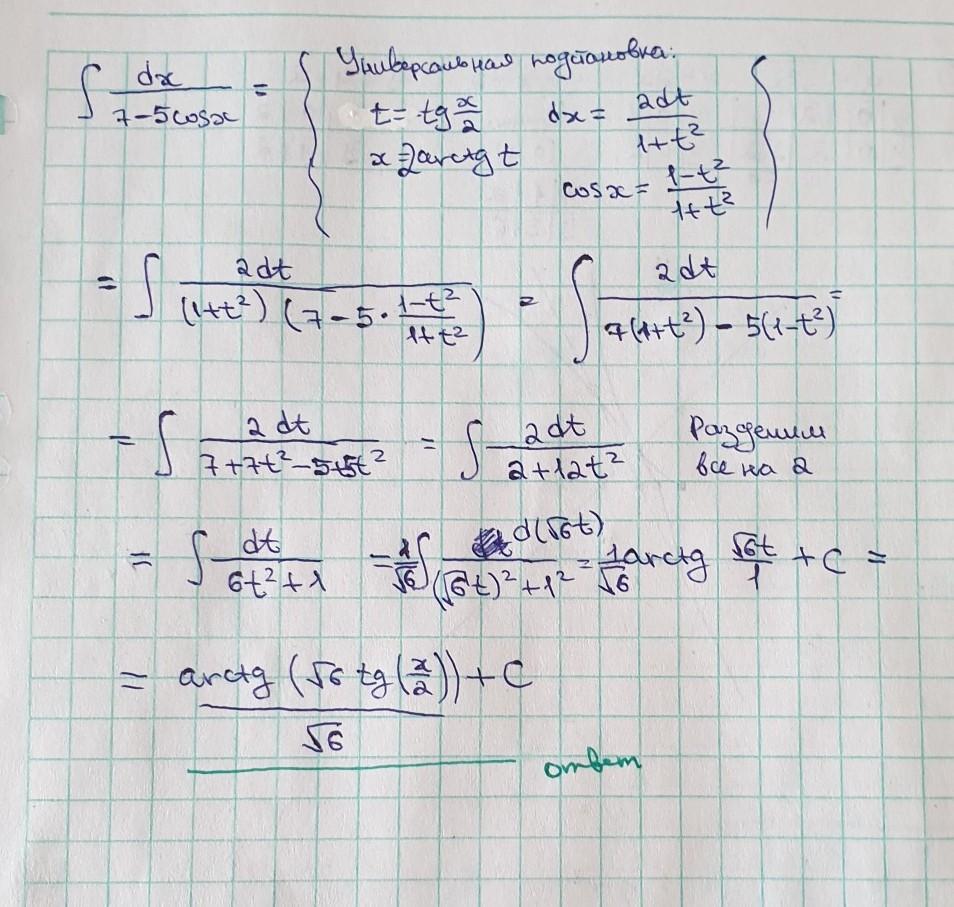 ∫ dx/(7-5cosx) = { Универсальная подстановка:
t = tg x/2    dx = 2dt/(1+t²)
x = 2arctg t    cosx = (1-t²)/(1+t²) {
= ∫ 2dt/((1+t²)(7-5·(1-t²)/(1+t²))) = ∫ 2dt/(7(1+t²)-5(1-t²)) =
= ∫ 2dt/(7+7t²-5+5t²) = ∫ 2dt/(2+12t²)    Разделим
все на 2
= ∫ dt/(6t²+1) = 1/√6 ∫ d(√6t)/((√6t)²+1²) = 1/√6 arctg √6t/1 + C =
= arctg(√6 tg(x/2))/√6 + C
ответ